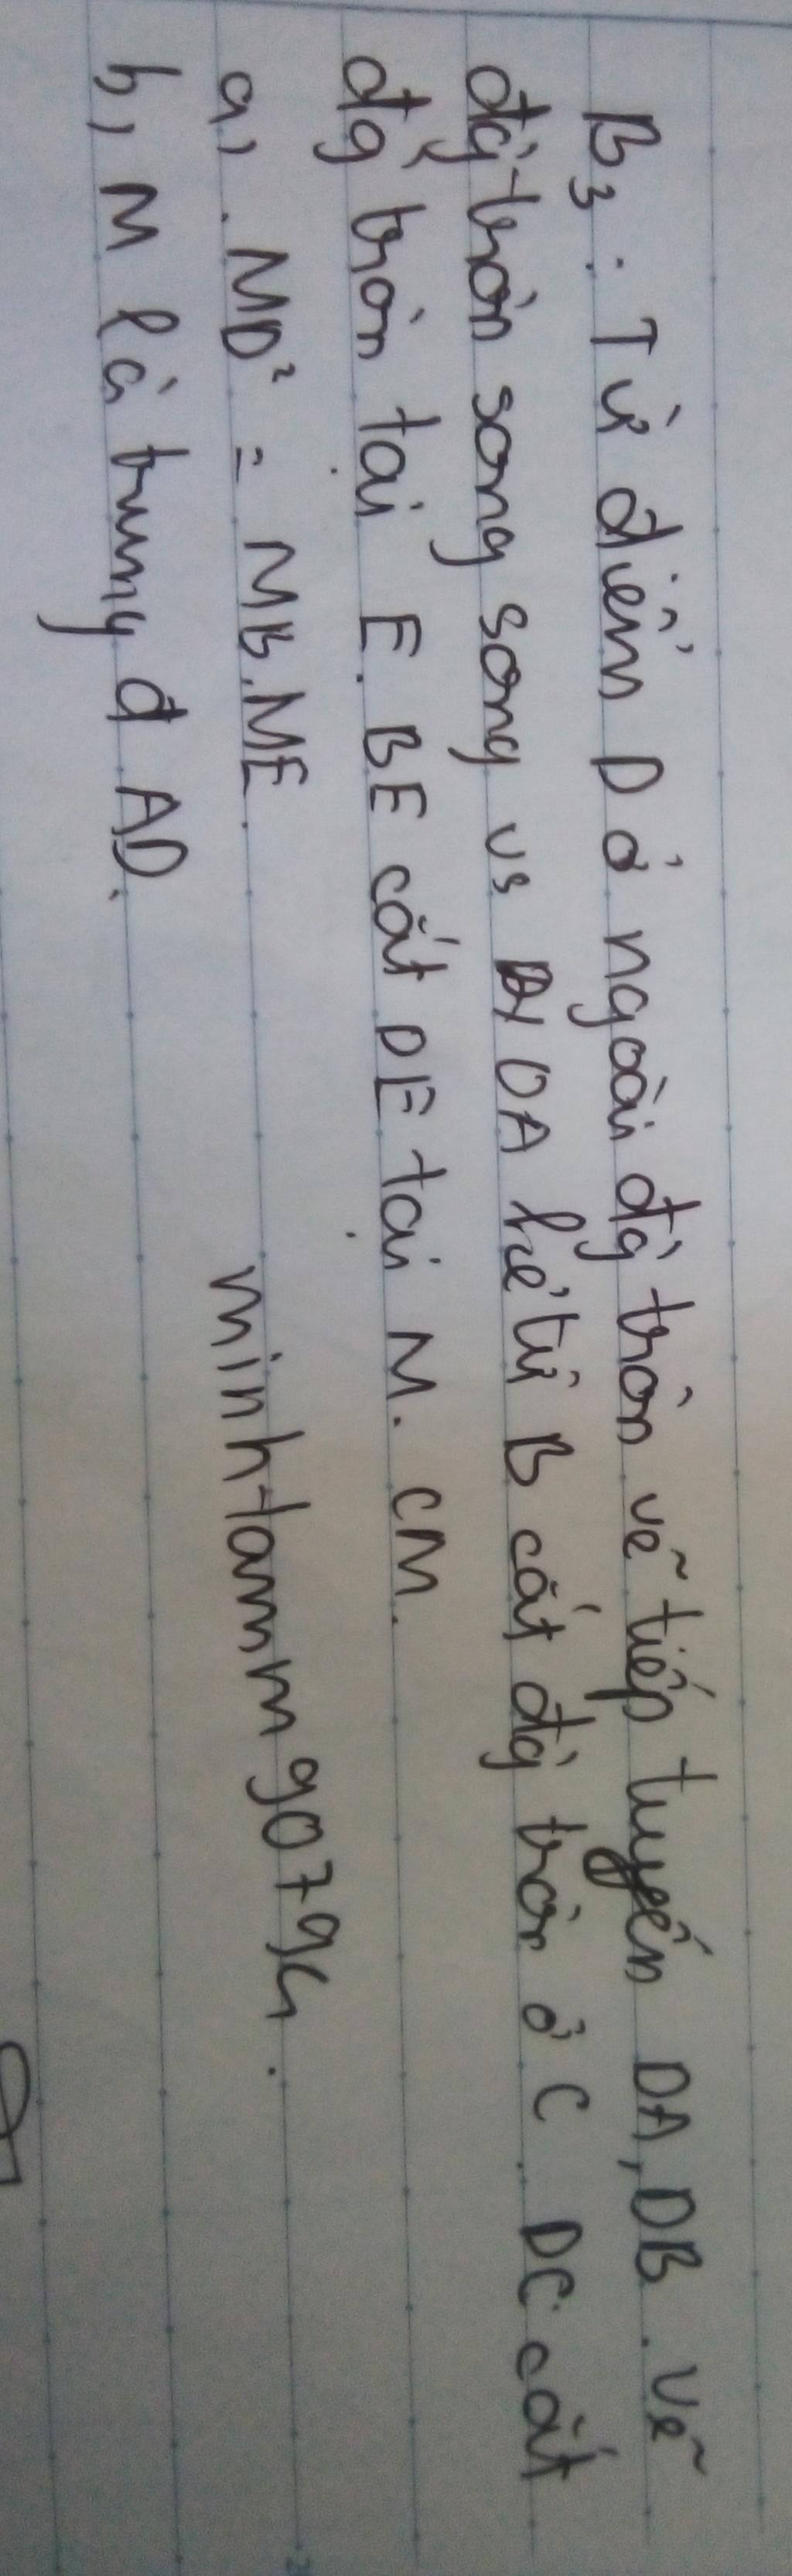 B3: Từ điểm D ở ngoài đg tròn vẽ tiếp tuyến DA, DB. Vẽ
đg tròn song song vs DA kẻ từ B cắt đg tròn ở C. DC cắt
đg tròn tại E. BE cắt DE tại M. CM.
a, MD² = MB.ME.
b, M là trung đ AD.
minhtamm90794.